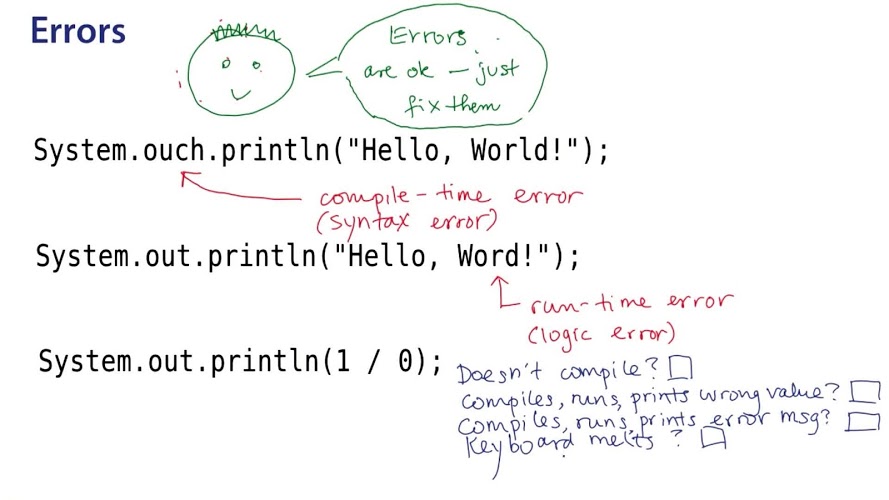 Errors
Errors
are ok - just
fix them
System.ouch.println("Hello, World!");
compile-time error
(syntax error)
System.out.println("Hello, Word!");
run-time error
(logic error)
System.out.println(1 / 0);
Doesn't compile?
Compiles, runs, prints wrong value?
Compiles, runs, prints error msg?
Keyboard melts?